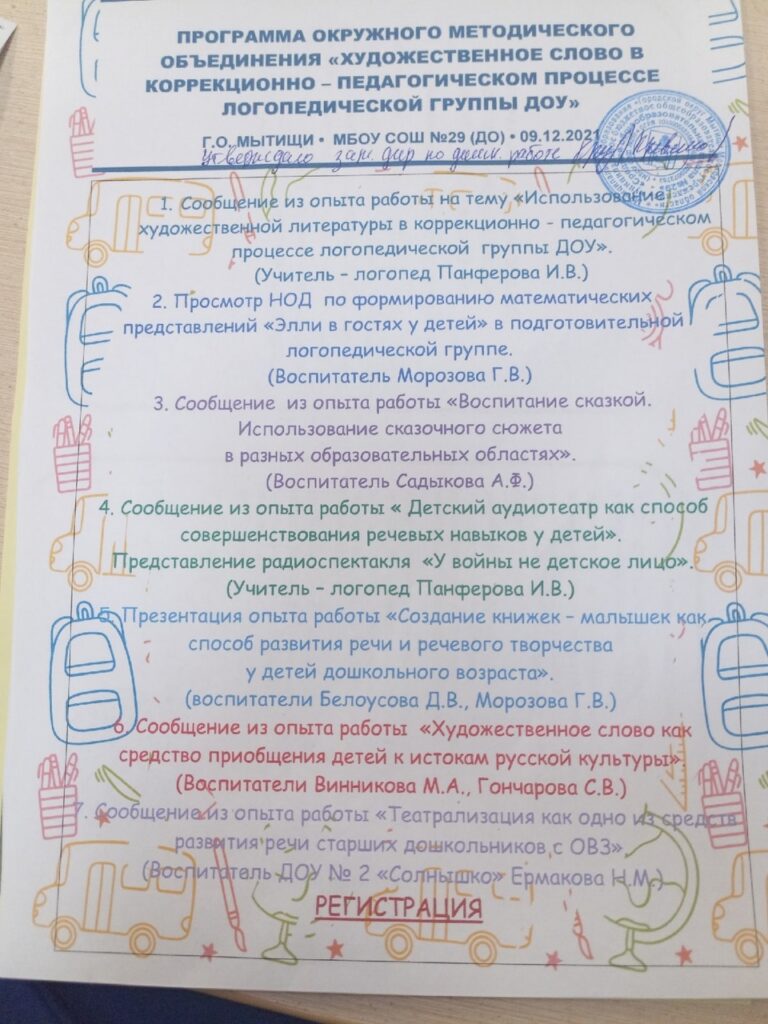 ПРОГРАММА ОКРУЖНОГО МЕТОДИЧЕСКОГО
ОБЪЕДИНЕНИЯ «ХУДОЖЕСТВЕННОЕ СЛОВО В
КОРРЕКЦИОННО – ПЕДАГОГИЧЕСКОМ ПРОЦЕССЕ
ЛОГОПЕДИЧЕСКОЙ ГРУППЫ ДОУ»
Г.О. МЫТИЩИ • МБОУ СОШ №29 (ДО) • 09.12.2021
зам. дир по дошк. работе
1. Сообщение из опыта работы на тему «Использование
художественной литературы в коррекционно - педагогическом
процессе логопедической группы ДОУ».
(Учитель – логопед Панферова И.В.)
2. Просмотр НОД по формированию математических
представлений «Элли в гостях у детей» в подготовительной
логопедической группе.
(Воспитатель Морозова Г.В.)
3. Сообщение из опыта работы «Воспитание сказкой.
Использование сказочного сюжета
в разных образовательных областях».
(Воспитатель Садыкова А.Ф.)
4. Сообщение из опыта работы « Детский аудиотеатр как способ
совершенствования речевых навыков у детей».
Представление радиоспектакля «У войны не детское лицо».
(Учитель – логопед Панферова И.В.)
5. Презентация опыта работы «Создание книжек – малышек как
способ развития речи и речевого творчества
у детей дошкольного возраста».
(воспитатели Белоусова Д.В., Морозова Г.В.)
6. Сообщение из опыта работы «Художественное слово как
средство приобщения детей к истокам русской культуры»
(Воспитатели Винникова М.А., Гончарова С.В.)
7. Сообщение из опыта работы «Театрализация как одно из средств
развития речи старших дошкольников с ОВЗ»
(Воспитатель ДОУ № 2 «Солнышко» Ермакова Н.М.)
РЕГИСТРАЦИЯ